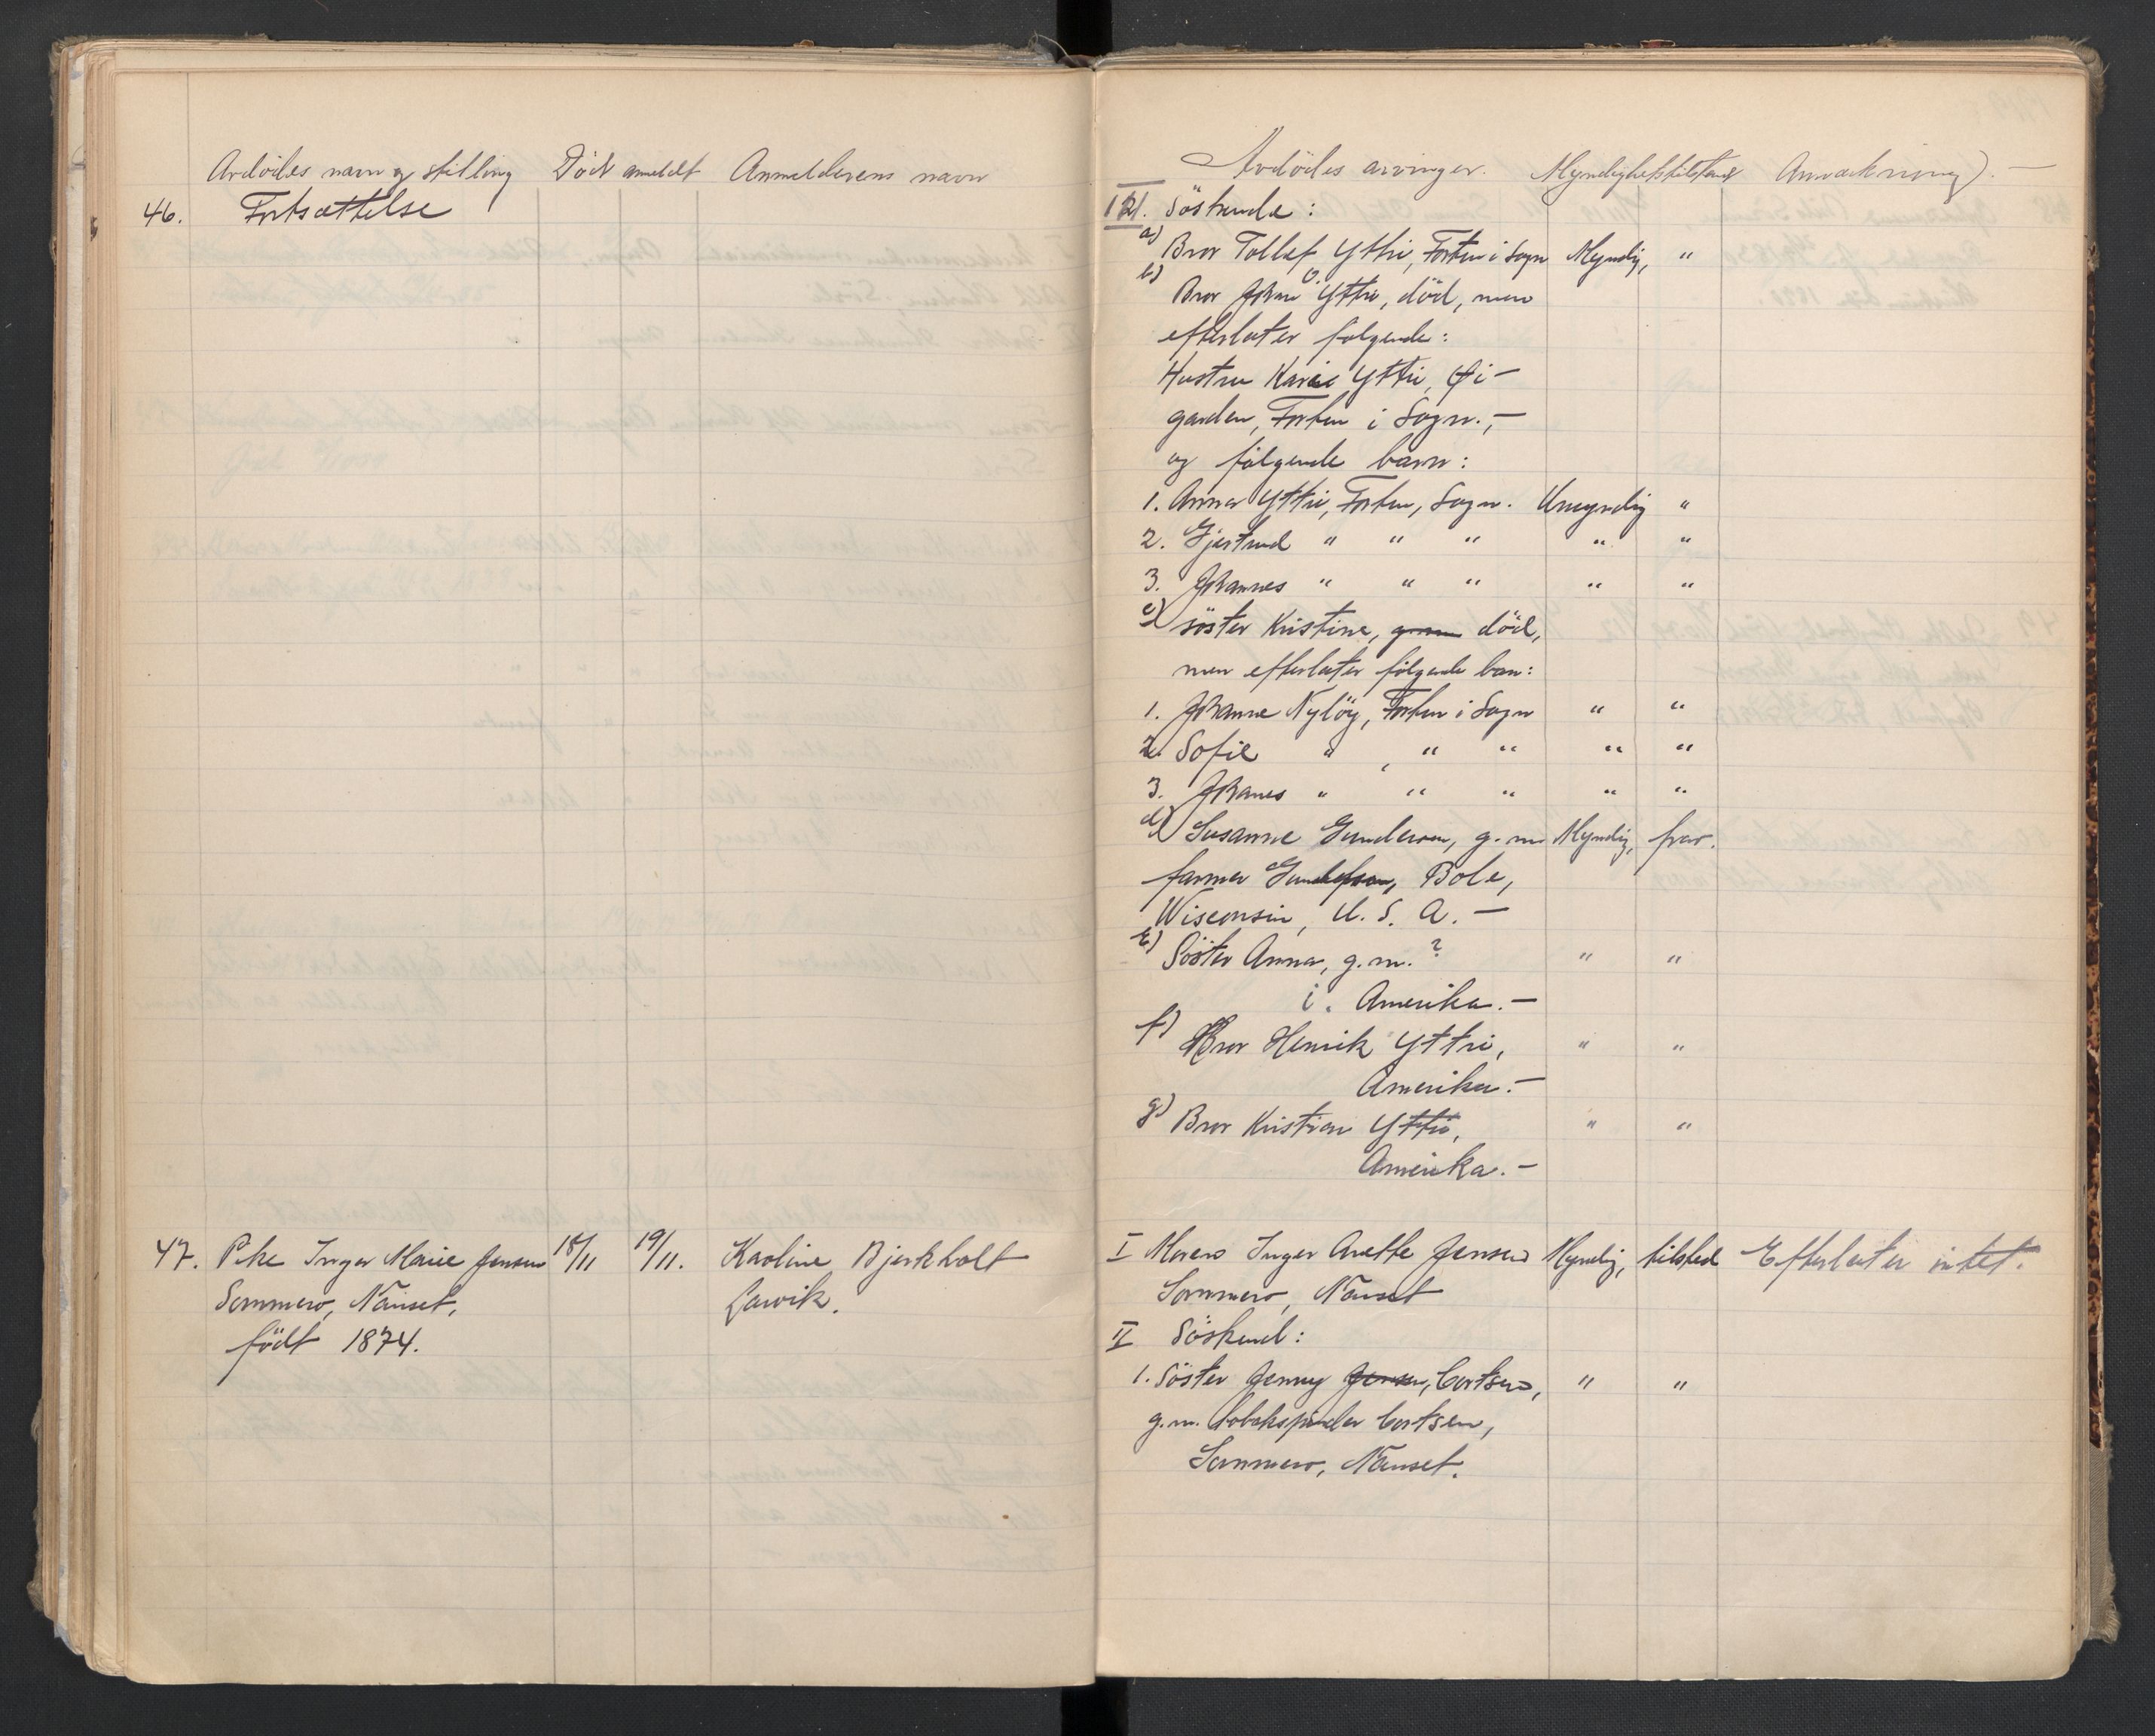 Avdödes navn og stilling Död anmeldt Anmelderens navn
46. Fortsættelse
47. Pike Inger Marie Jensen 18/11 19/11. Karoline Bjerkholt
Sommero, Nanset, Larvik.
födt 1874.
Avdödes arvinger. Myndighetstilstand Anmærkning). —
Söskende:
a) Bror Tollef Yttri, Forten i Sogn Myndig, "
b) Bror Johan O. Yttri, död, men
efterlater følgende:
Hustru Karie Yttri, Øi-
garden, Forten i Sogn.,—
og følgende barn:
1. Anna Yttri, Forten, Sogn. Umyndig "
2. Gjertrud " " " " "
3. Johannes " " " " "
c) söster Kristine, död,
men efterlater følgende barn:
1. Johanne Nylöy, Forten i Sogn " "
2. Sofie " , " " " "
3. Johanes " " " " "
d) Susanne Gunderson, g. m. Myndig, frav.
farmer Gunderson, Bole,
Wisconsin, U. S. A. —
e) Söster Anna, g. m. ? " "
i. Amerika. —
f) Bror Henrik Yttri, " "
Amerika. —
g) Bror Kristian Yttri, " "
Amerika. —
I Moren Inger Anette Jensen Myndig, tilsted Efterlater intet.
Sommero, Nanset
II Söskend:
1. Söster Jenny Jensen, Cortsen, " "
g. m. tobakspinder Cortsen,
Sommero, Nanset.